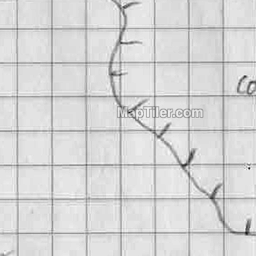 co
MapTiler.com